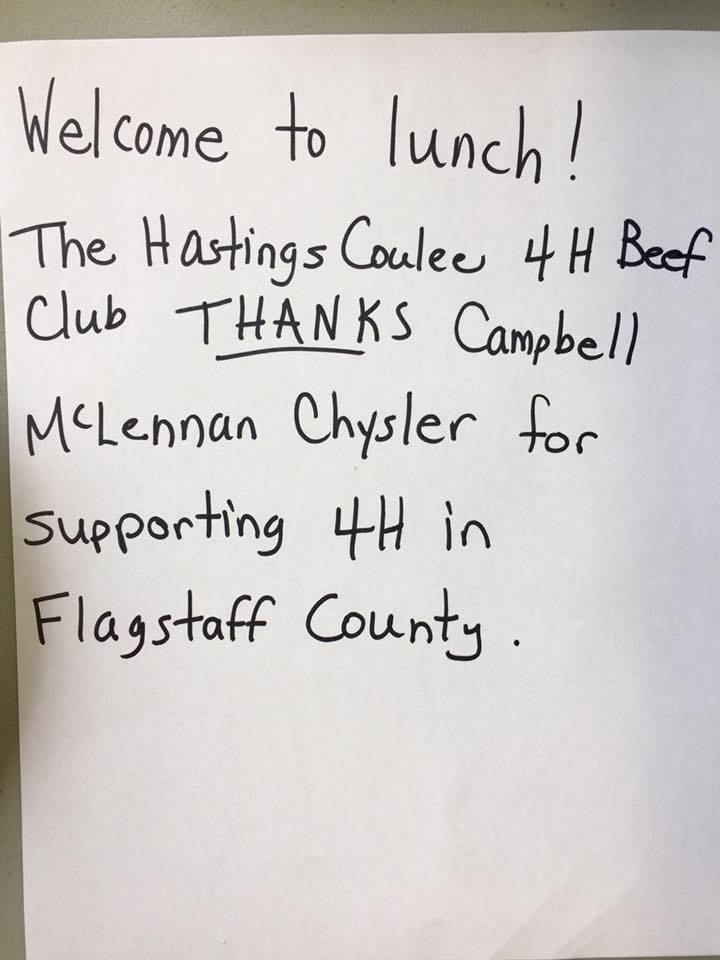 Welcome to lunch!
The Hastings Coulee 4H Beef
Club THANKS Campbell
McLennan Chysler for
supporting 4H in
Flagstaff County.